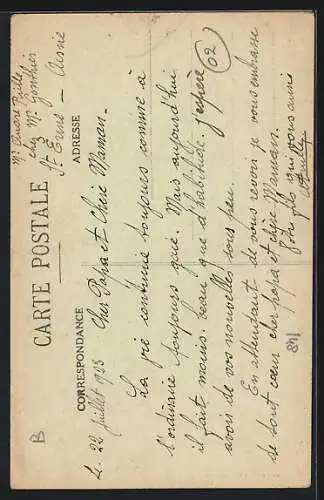 CARTE POSTALE
CORRESPONDANCE
ADRESSE
Mr André
chez Mr Gonthier
St Erme - Aisne
02
B
Le 22 Juillet 1935
Cher Papa et Chère Maman.
La vie continue toujours comme à
l'ordinaire toujours gaie. Mais aujourd'hui
il fait moins beau que d'habitude. j'espère
avoir de vos nouvelles sous peu.
En attendant de vous revoir je vous embrasse
de tout cœur cher papa et chère Maman.
Votre fils qui vous aime